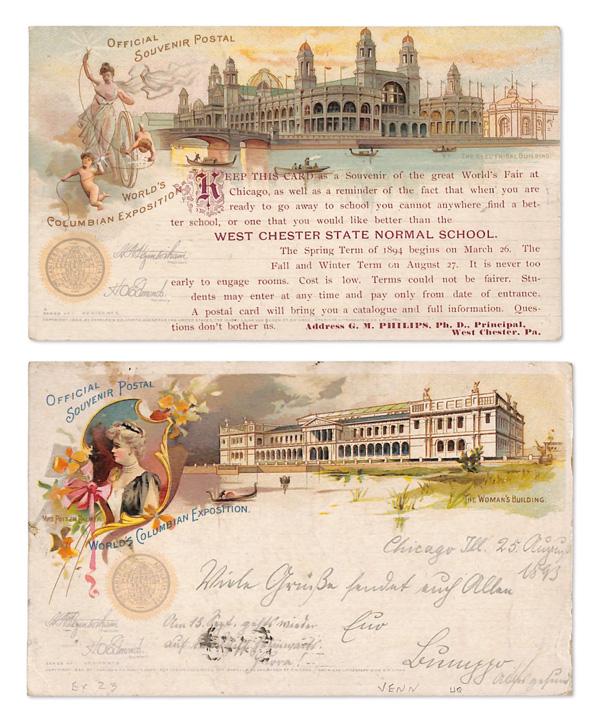 OFFICIAL
SOUVENIR POSTAL
THE ELECTRICAL BUILDING.
WORLD'S
COLUMBIAN EXPOSITION
KEEP THIS CARD as a Souvenir of the great World's Fair at
Chicago, as well as a reminder of the fact that when you are
ready to go away to school you cannot anywhere find a bet-
ter school, or one that you would like better than the
WEST CHESTER STATE NORMAL SCHOOL.
The Spring Term of 1894 begins on March 26. The
Fall and Winter Term on August 27. It is never too
early to engage rooms. Cost is low. Terms could not be fairer. Stu-
dents may enter at any time and pay only from date of entrance.
A postal card will bring you a catalogue and full information. Ques-
tions don't bother us. Address G. M. PHILIPS, Ph. D., Principal,
West Chester, Pa.
OFFICIAL
SOUVENIR POSTAL
THE WOMAN'S BUILDING.
WORLD'S COLUMBIAN EXPOSITION.
Chicago Ill. 25. August
1893
Viele Grüße sendet euch Allen
Am 15. Sept. geht's wieder
auf
Euo
Ex 23
VENN